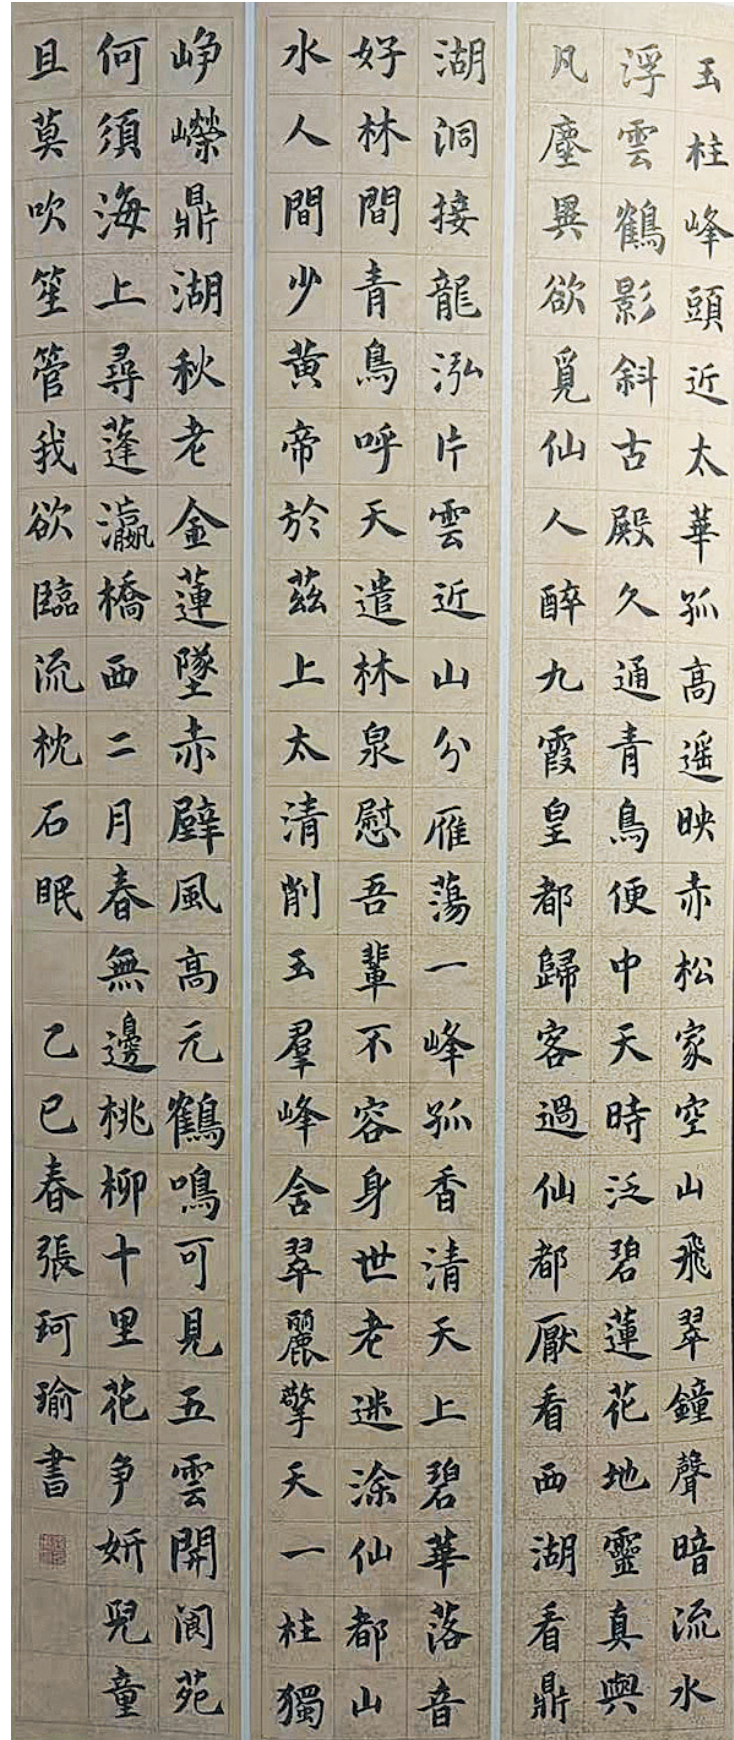 玉柱峰頭近太華孤高遥映赤松家空山飛翠鐘聲暗流水
浮雲鶴影斜古殿久通青鳥便中天時泛碧蓮花地靈真與
凡塵異欲覓仙人醉九霞皇都歸客過仙都厭看西湖看鼎
湖洞接龍泓片雲近山分雁蕩一峰孤香清天上碧華落音
好林間青鳥呼天遣林泉慰吾輩不容身世老迷涂仙都山
水人間少黃帝於茲上太清削玉羣峰含翠麗擎天一柱獨
崢嶸鼎湖秋老金蓮墜赤壁風高元鶴鳴可見五雲開閬苑
何須海上尋蓬瀛橋西二月春無邊桃柳十里花爭妍兒童
且莫吹笙管我欲臨流枕石眠
乙巳春張珂瑜書